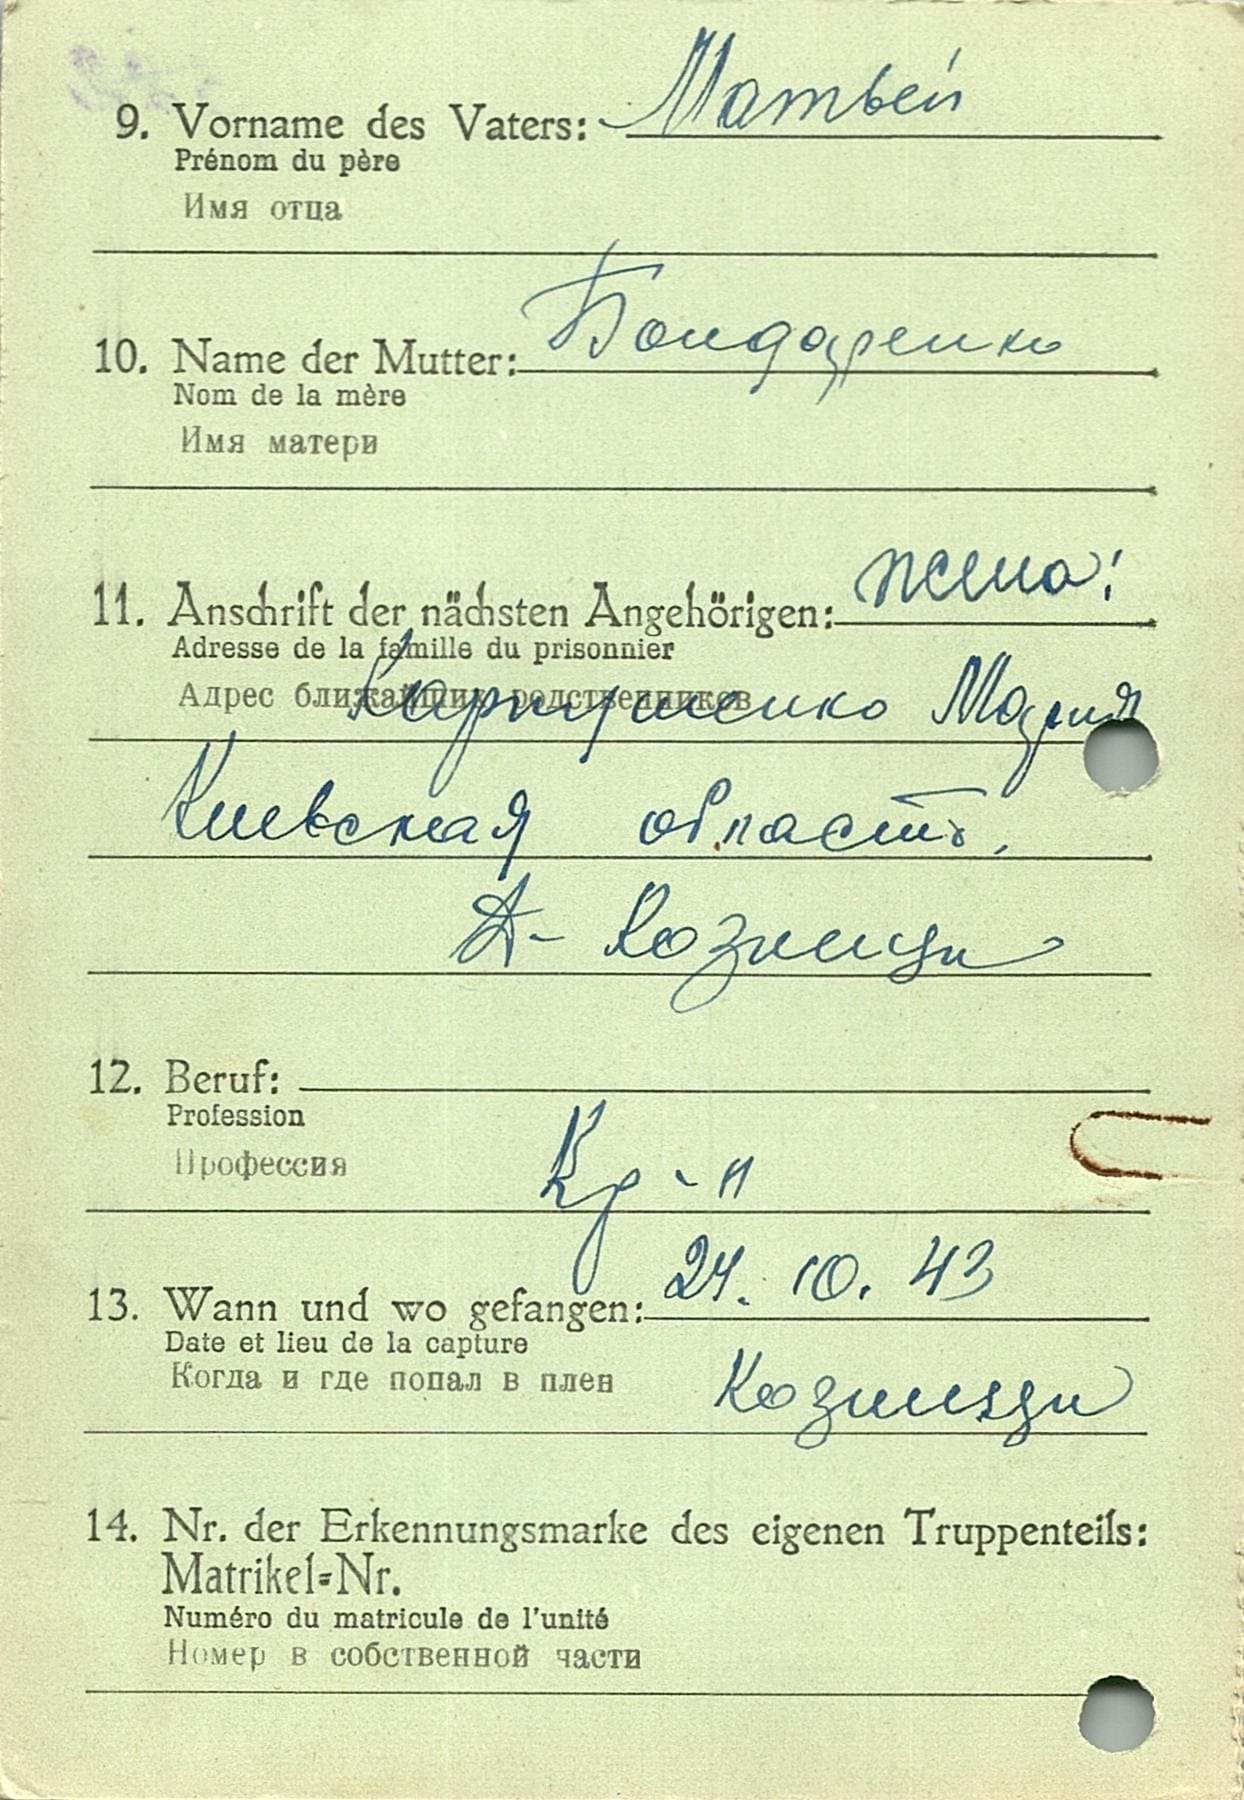 9. Vorname des Vaters: Матвей
Prénom du père
Имя отца
10. Name der Mutter: Бондаренко
Nom de la mère
Имя матери
11. Anschrift der nächsten Angehörigen: жена:
Adresse de la famille du prisonnier
Адрес ближайших родственников
Мария
Киевская область.
Д-
12. Beruf:
Profession
Профессия
Кр-н
13. Wann und wo gefangen: 24. 10. 43
Date et lieu de la capture
Когда и где попал в плен
14. Nr. der Erkennungsmarke des eigenen Truppenteils:
Matrikel=Nr.
Numéro du matricule de l'unité
Номер в собственной части